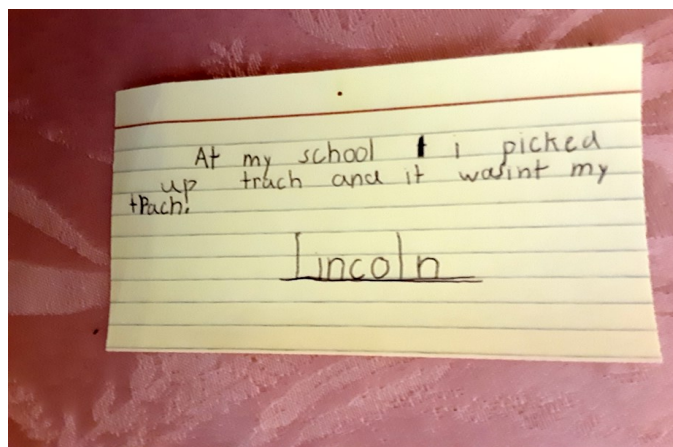 At my school i picked
up trach and it wasint my
trach.
Lincoln